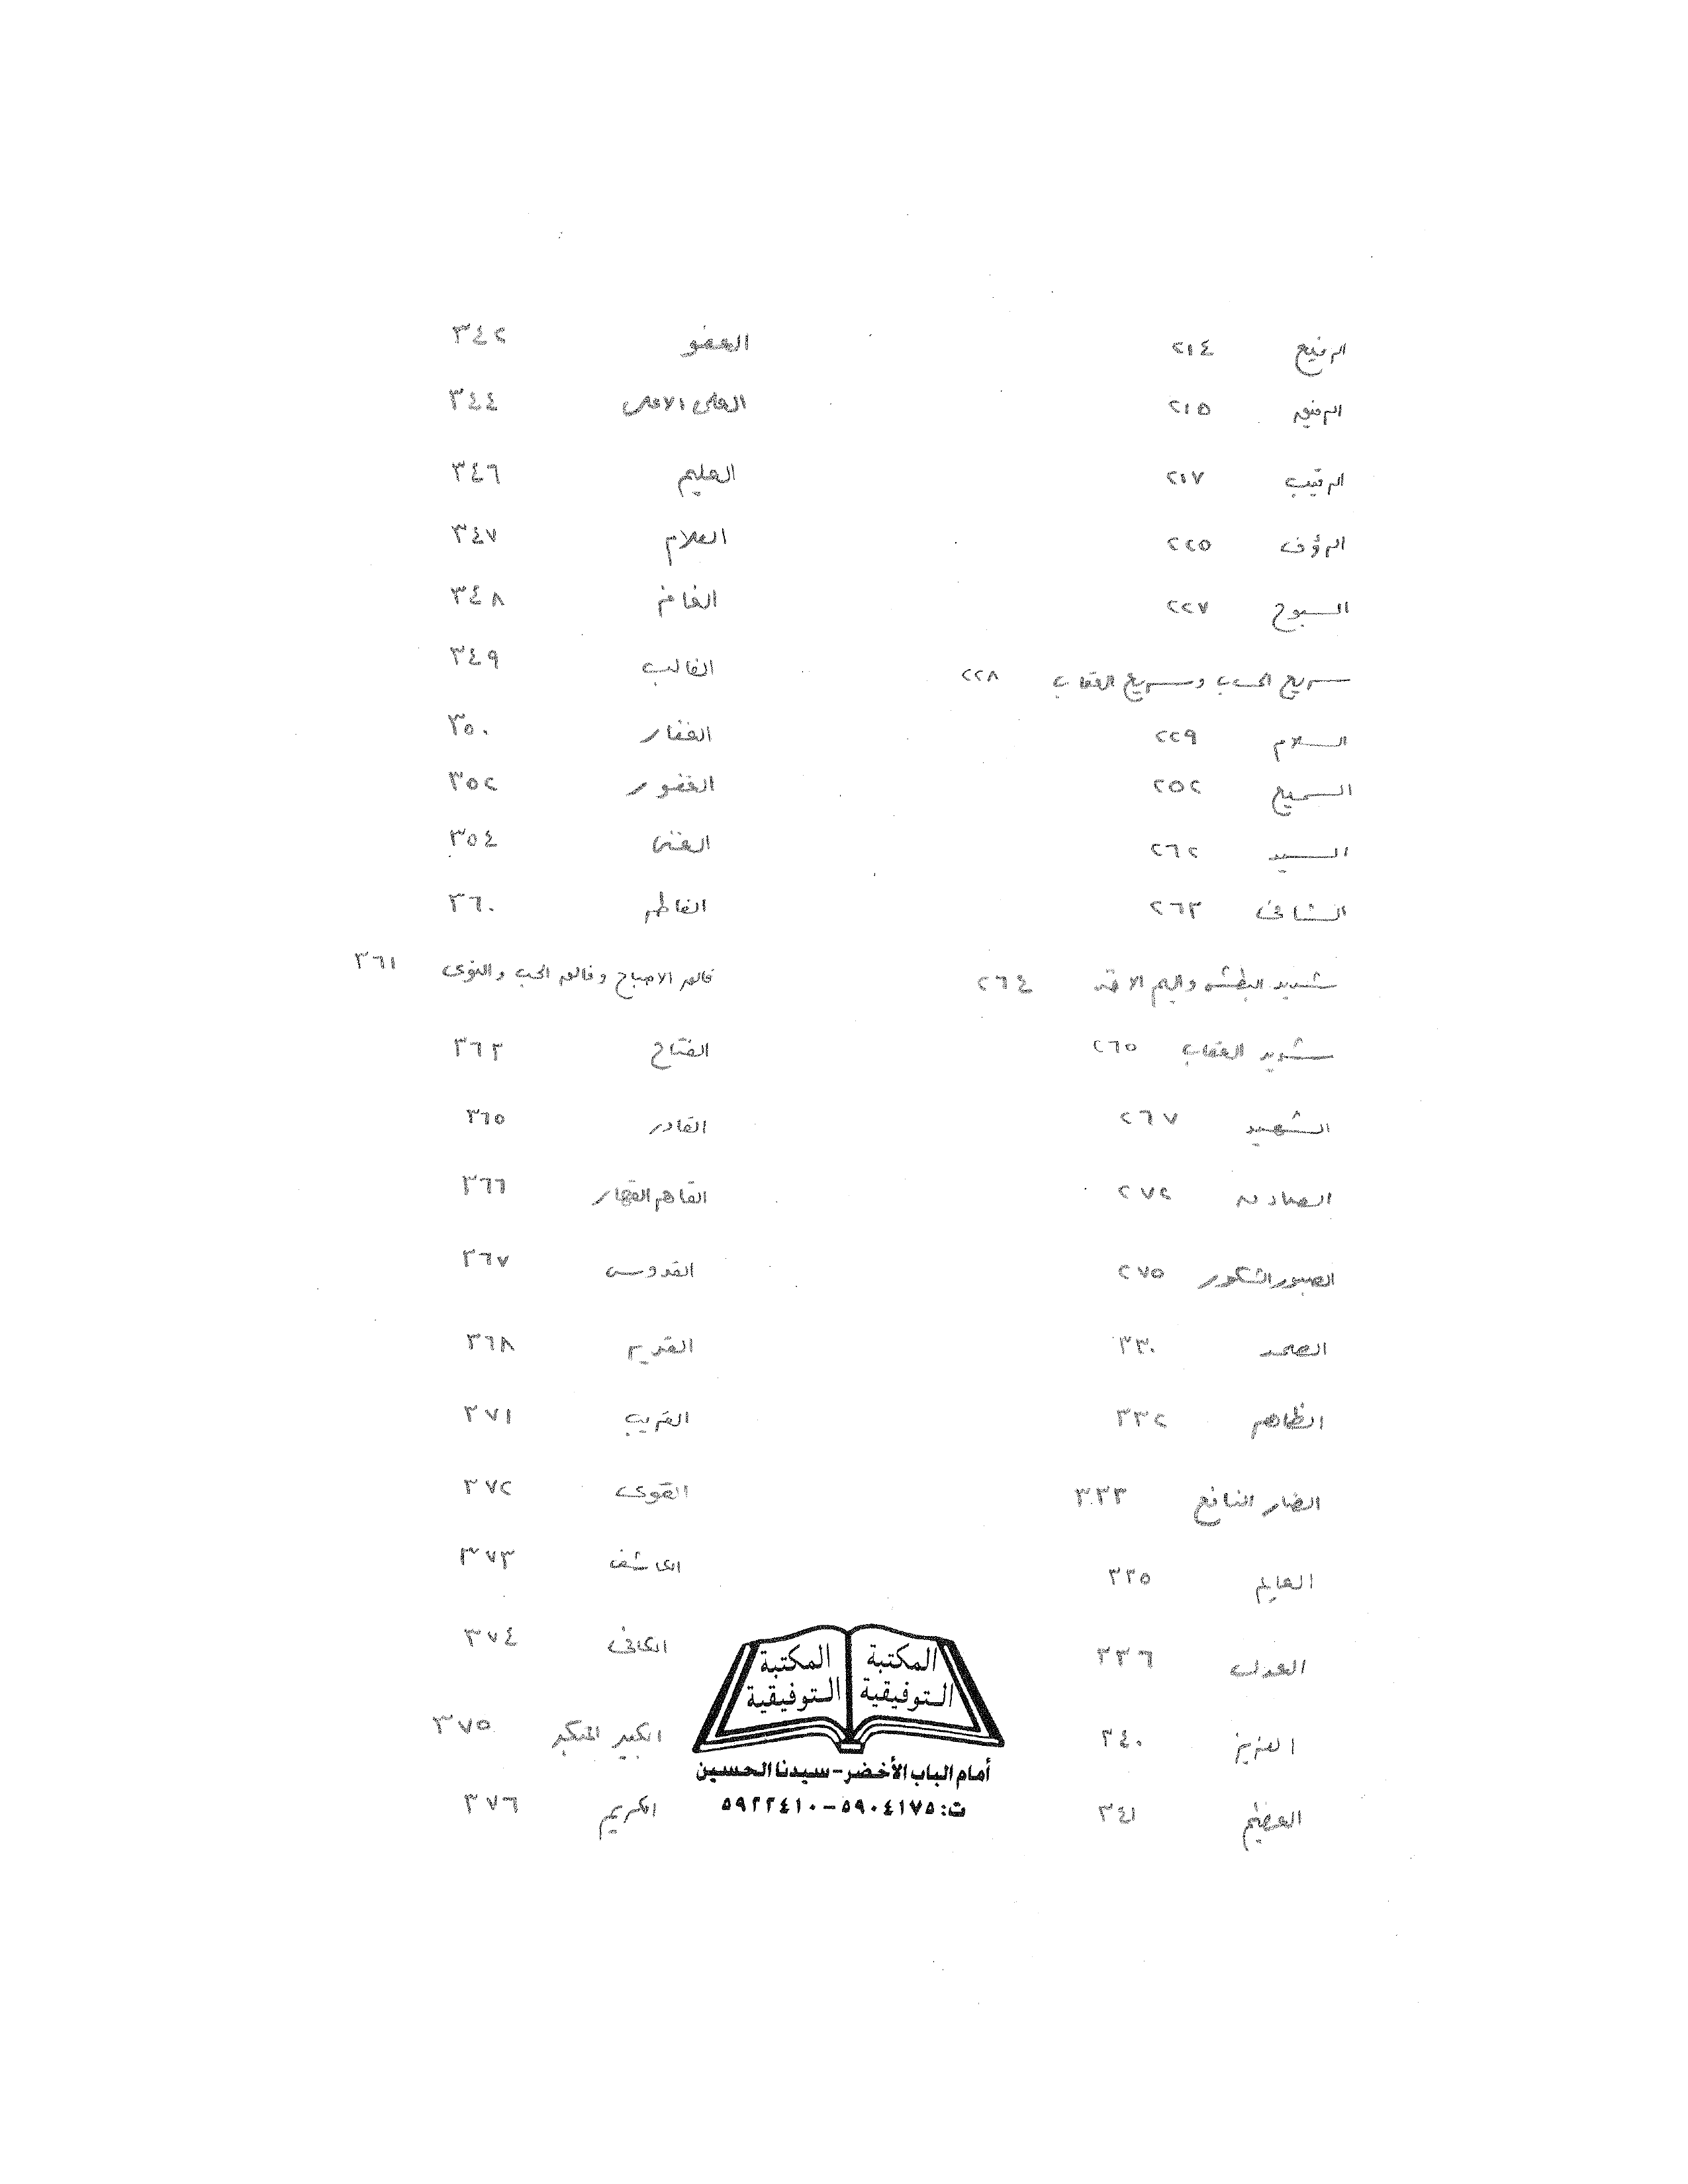 الرفيع ٢١٤
الرفيق ٢١٥
الرقيب ٢١٧
الرؤف ٢٢٥
السبوح ٢٢٧
سريع الحساب وسريع العقاب ٢٢٨
السلام ٢٢٩
السميع ٢٥٢
السيد ٢٦٢
الشافى ٢٦٣
شديد البطش واليم الاخذ ٢٦٤
شديد العقاب ٢٦٥
الشهيد ٢٦٧
الصادق ٢٧٢
الصبور الشكور ٢٧٥
الصمد ٣٣٠
الظاهر ٣٣٢
الضار النافع ٣٣٣
العالم ٣٣٥
العدل ٣٣٦
العزيز ٣٤٠
العظيم ٣٤١
العفو ٣٤٢
العلى الاعلى ٣٤٤
العليم ٣٤٦
العلام ٣٤٧
الغافر ٣٤٨
الغالب ٣٤٩
الغفار ٣٥٠
الغفور ٣٥٢
الغنى ٣٥٤
الفاطر ٣٦٠
فالق الاصباح وفالق الحب والنوى ٣٦١
الفتاح ٣٦٣
القادر ٣٦٥
القاهر القهار ٣٦٦
القدوس ٣٦٧
القدير ٣٦٨
القريب ٣٧١
القوى ٣٧٢
الكاشف ٣٧٣
الكافى ٣٧٤
الكبير المتكبر ٣٧٥
الكريم ٣٧٦
المكتبة المكتبة
التوفيقية التوفيقية
أمام الباب الأخضر - سيدنا الحسين
ت: ٥٩٠٤١٧٥ - ٥٩٢٢٤١٠